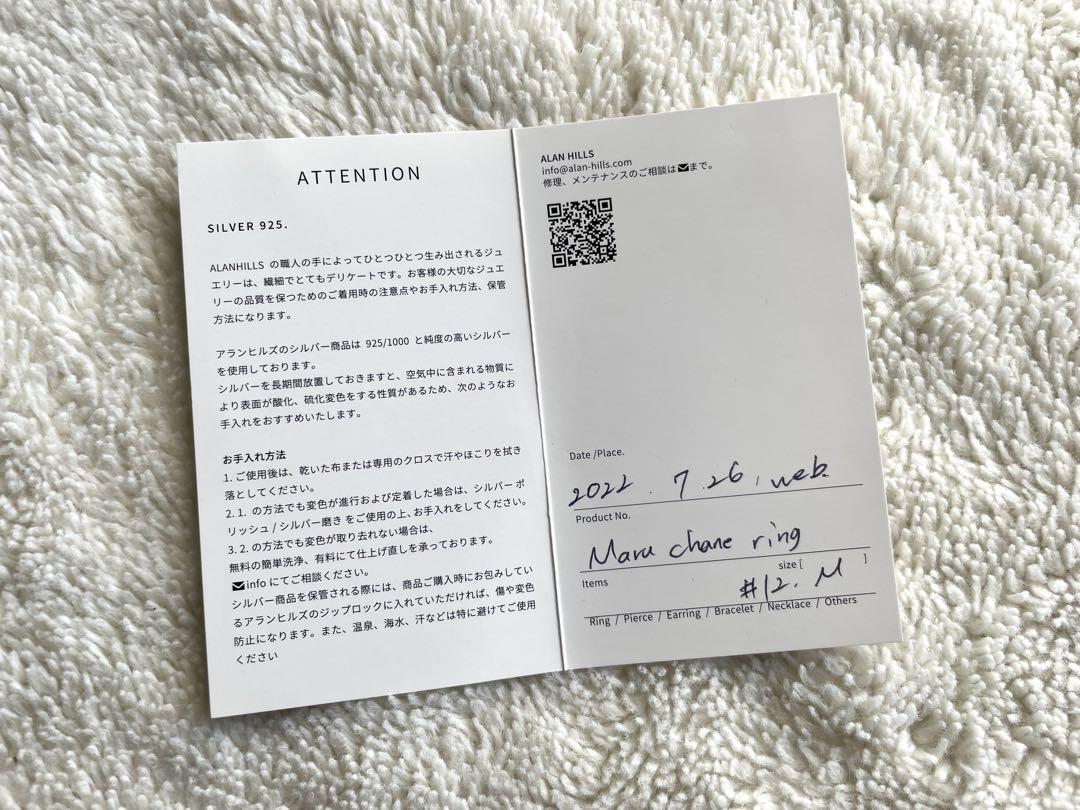 ATTENTION
SILVER 925.
ALANHILLS の職人の手によってひとつひとつ生み出されるジュ
エリーは、繊細でとてもデリケートです。お客様の大切なジュエ
リーの品質を保つためのご着用時の注意点やお手入れ方法、保管
方法になります。
アランヒルズのシルバー商品は 925/1000 と純度の高いシルバー
を使用しております。
シルバーを長期間放置しておきますと、空気中に含まれる物質に
より表面が酸化、硫化変色をする性質があるため、次のようなお
手入れをおすすめいたします。
お手入れ方法
1. ご使用後は、乾いた布または専用のクロスで汗やほこりを拭き
落としてください。
2. 1. の方法でも変色が進行および定着した場合は、シルバー ポ
リッシュ / シルバー磨き をご使用の上、お手入れをしてください。
3. 2. の方法でも変色が取り去れない場合は、
無料の簡単洗浄、有料にて仕上げ直しを承っております。
infoにてご相談ください。
シルバー商品を保管される際には、商品ご購入時にお包みしてい
るアランヒルズのジップロックに入れていただければ、傷や変色
防止になります。また、温泉、海水、汗などは特に避けてご使用
ください
ALAN HILLS
info@alan-hills.com
修理、メンテナンスのご相談は まで。
Date /Place.
2022 . 7 . 26 , web.
Product No.
Maru chane ring
Items size [ ]
#12. M
Ring / Pierce / Earring / Bracelet / Necklace / Others